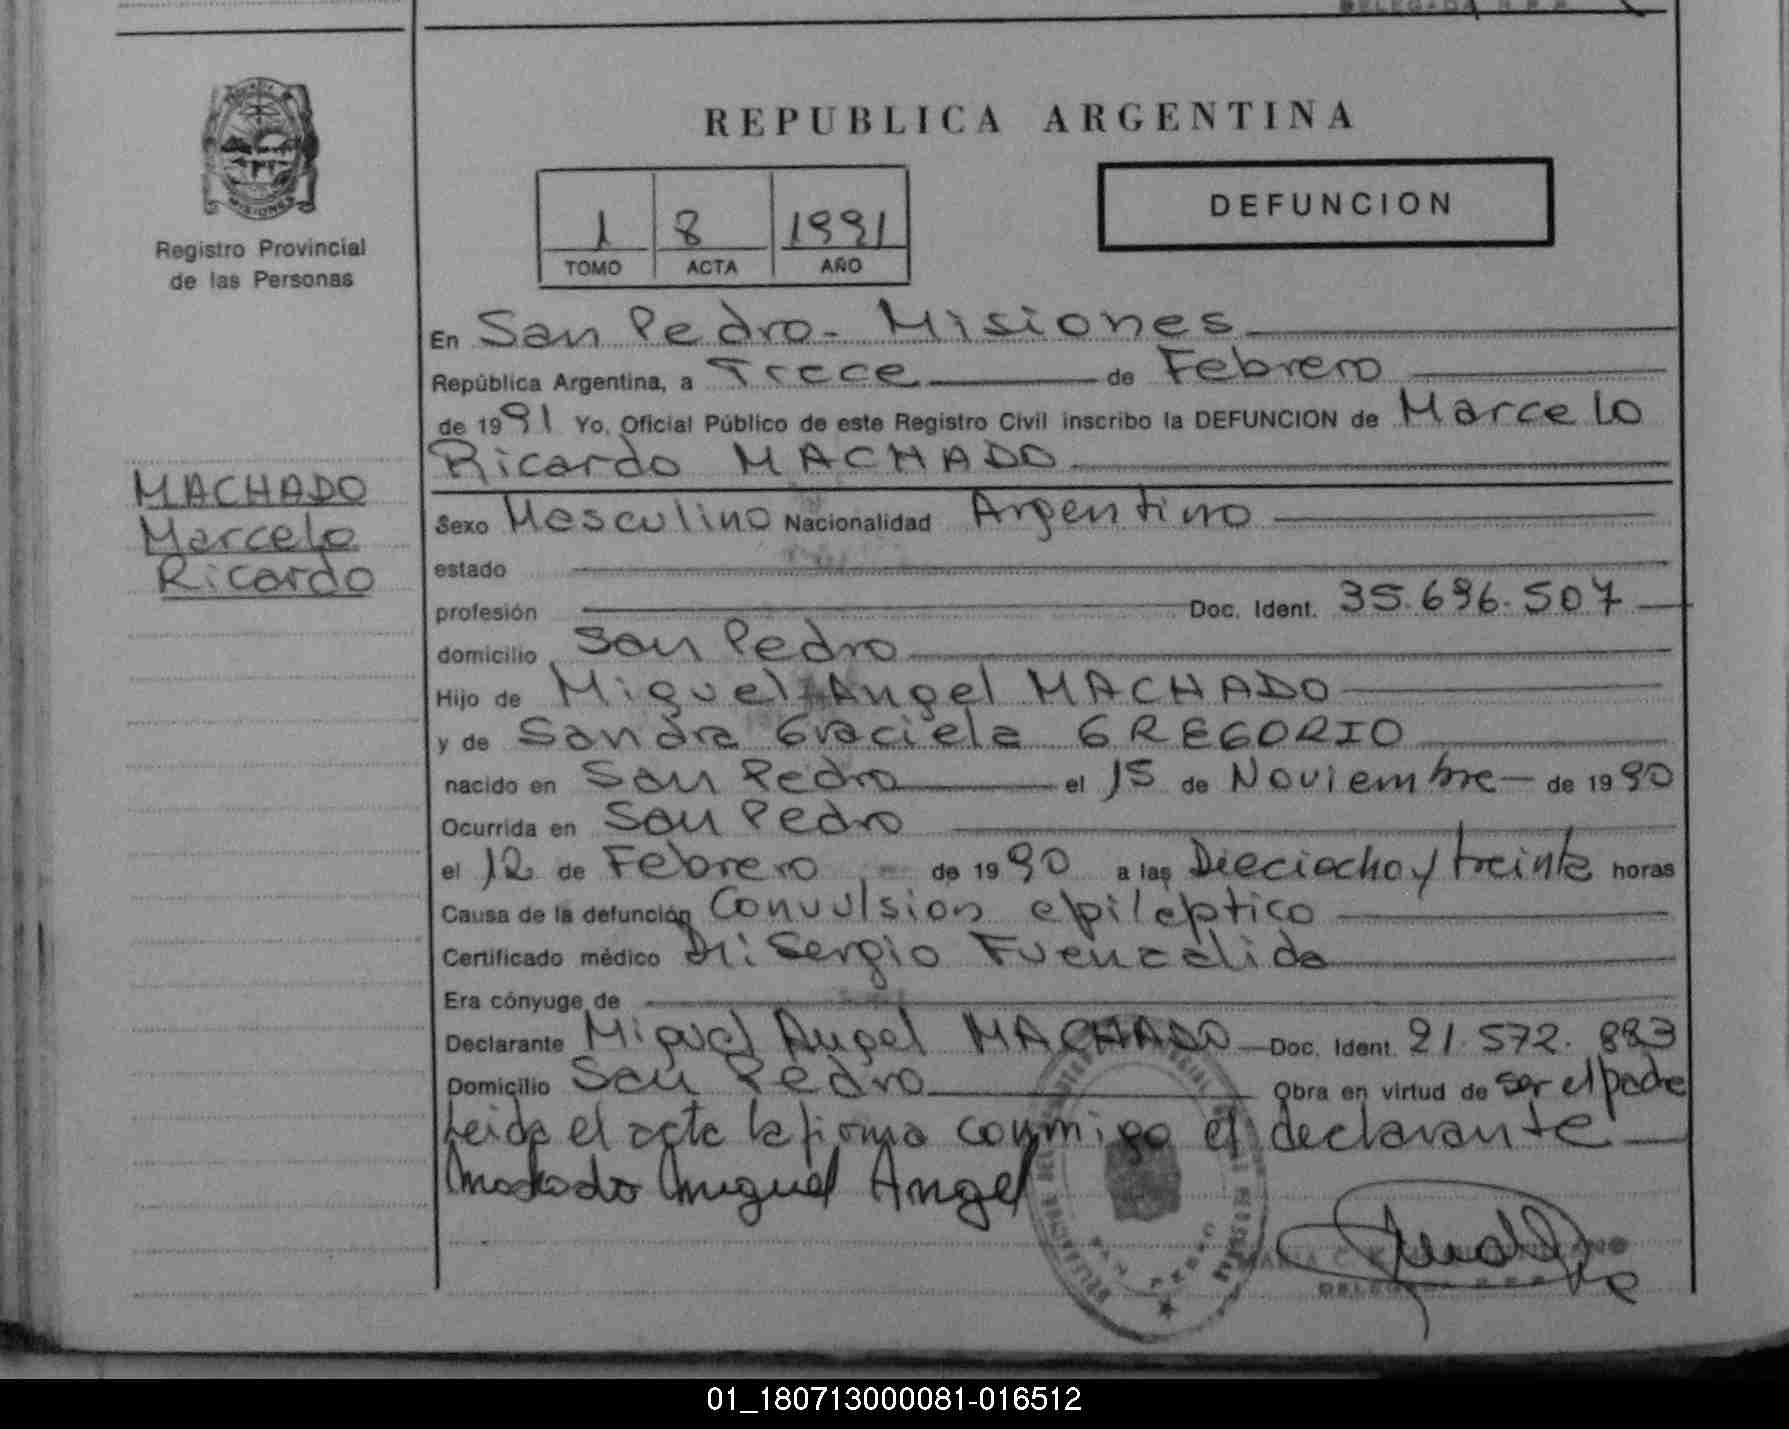 REPUBLICA ARGENTINA
MISIONES
Registro Provincial
de las Personas
1 8 1991
TOMO ACTA AÑO
DEFUNCION
En San Pedro - Misiones
República Argentina, a Trece de Febrero
de 1991 Yo, Oficial Público de este Registro Civil inscribo la DEFUNCION de Marcelo
Ricardo MACHADO
MACHADO
Marcelo
Ricardo
Sexo Masculino Nacionalidad Argentino
estado
profesión Doc. Ident. 35.696.507
domicilio San Pedro
Hijo de Miguel Angel MACHADO
y de Sandra Graciela GREGORIO
nacido en San Pedro el 15 de Noviembre de 1990
Ocurrida en San Pedro
el 12 de Febrero de 1990 a las Dieciocho y treinta horas
Causa de la defunción Convulsion epileptico
Certificado médico Sergio Fuenzalida
Era cónyuge de
Declarante Miguel Angel MACHADO Doc. Ident. 21.572.883
Domicilio San Pedro Obra en virtud de ser el padre
Leida el acta la firma conmigo el declarante
Machado Miguel Angel
01_180713000081-016512